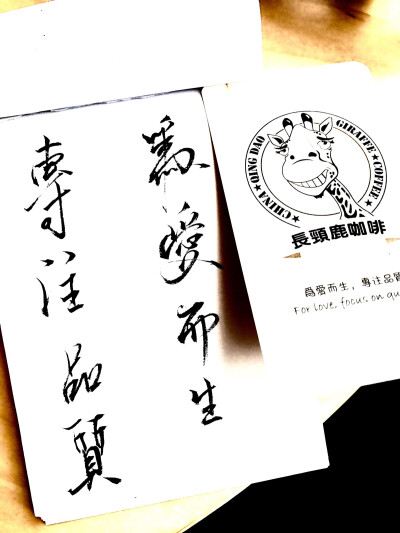 為愛而生
專注品質
CHINA★QING DAO★GIRAFFE★COFFEE★
長頸鹿咖啡
爲愛而生，專注品質
For love, focus on qu